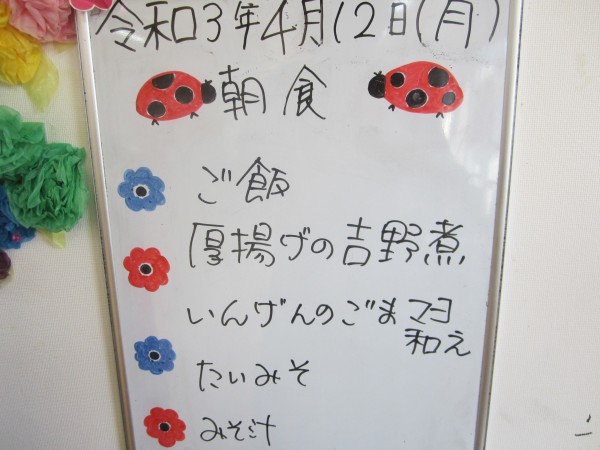 令和3年4月12日(月)
朝食
ご飯
厚揚げの吉野煮
いんげんのごまマヨ
和え
たいみそ
みそ汁